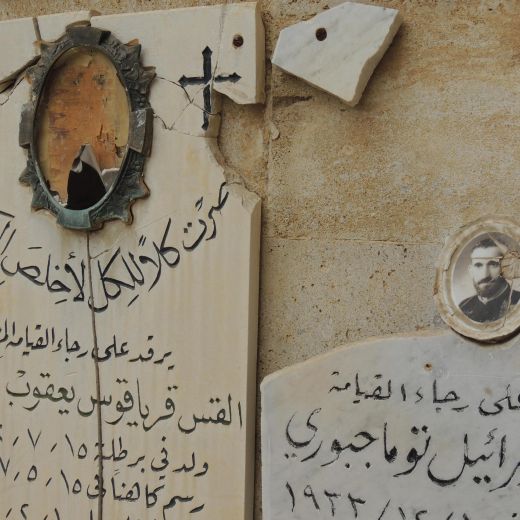 صرت كلاً للكل لأخلص
يرقد على رجاء القيامة
القس قرياقوس يعقوب
ولد في برطلة ١٥ . ٧ .
رسم كاهناً في ١٥ . ٥ . ٧
على رجاء القيامة
رائيل توما جبوري
١٩٣٣ / ١٢ / ١